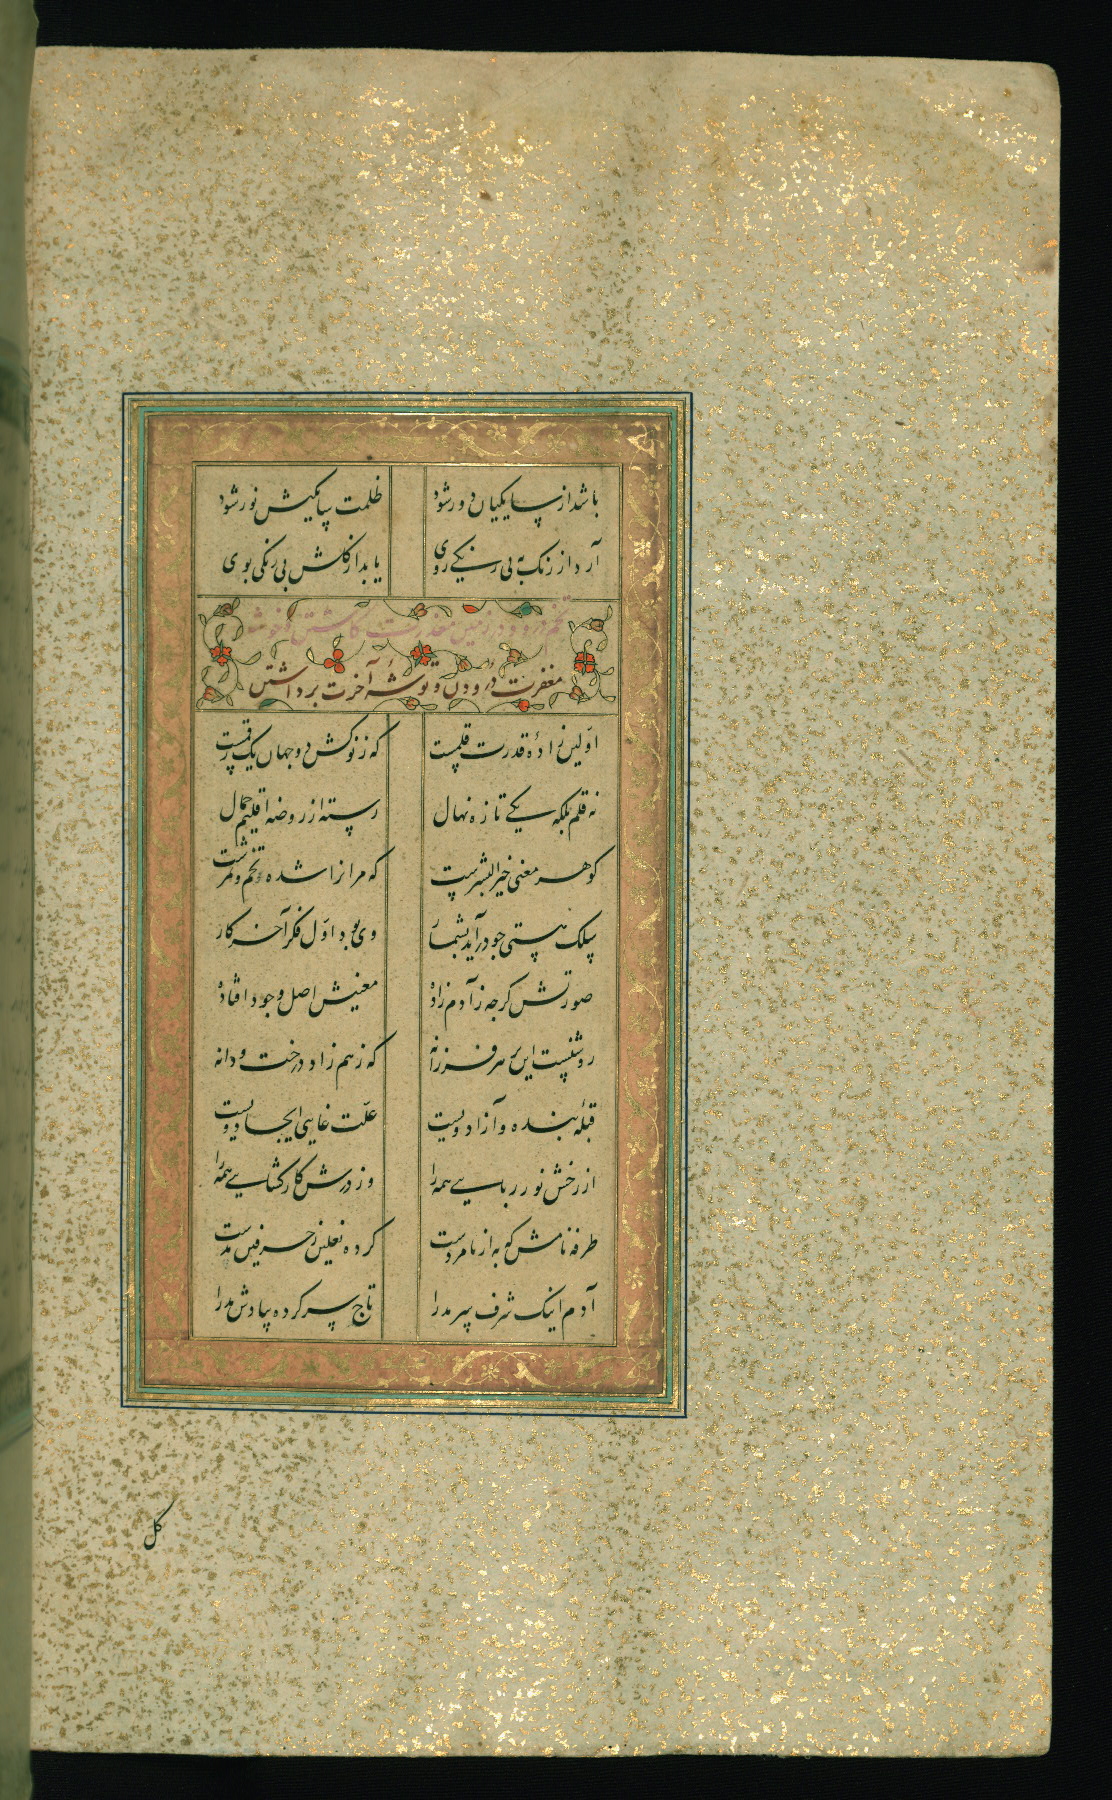 باشد از سایکیان دور شود ظلمت سایکیش نور شود
آرد از رنک به بی رنکی روی یابد از کلشن بی رنکی بوی
تخم درود در زمین معذرت کاشتن و خوشه
مغفرت درودن و توشهٔ آخرت برداشتن
اولین زادهٔ قدرت قلمست که ز نوکش دو جهان یک رقمست
نه قلم بلکه یکی تازه نهال رسته از روضه اقلیم جمال
کوهر معنی خیر البشرست که مر انرا شده تخم و ثمرست
سلک هستی چو درآید بشمار وی بود اول فکر آخر کار
صورتش کرچه ز آدم زاده معنیش اصل وجود افتاده
روشنست این بر هر فرزانه که ز هم زاد درخت و دانه
قبلهٔ بنده و آزاد ویست علت غایی ایجاد ویست
از رخش نور ربایی همه را وز درش کار کشایی همه را
طرفه نامش که به از نامردست کرده نعلین ز حرفین مدست
آدم اینک شرف سرمد را تاج سر کرده پیادش مد را
کل